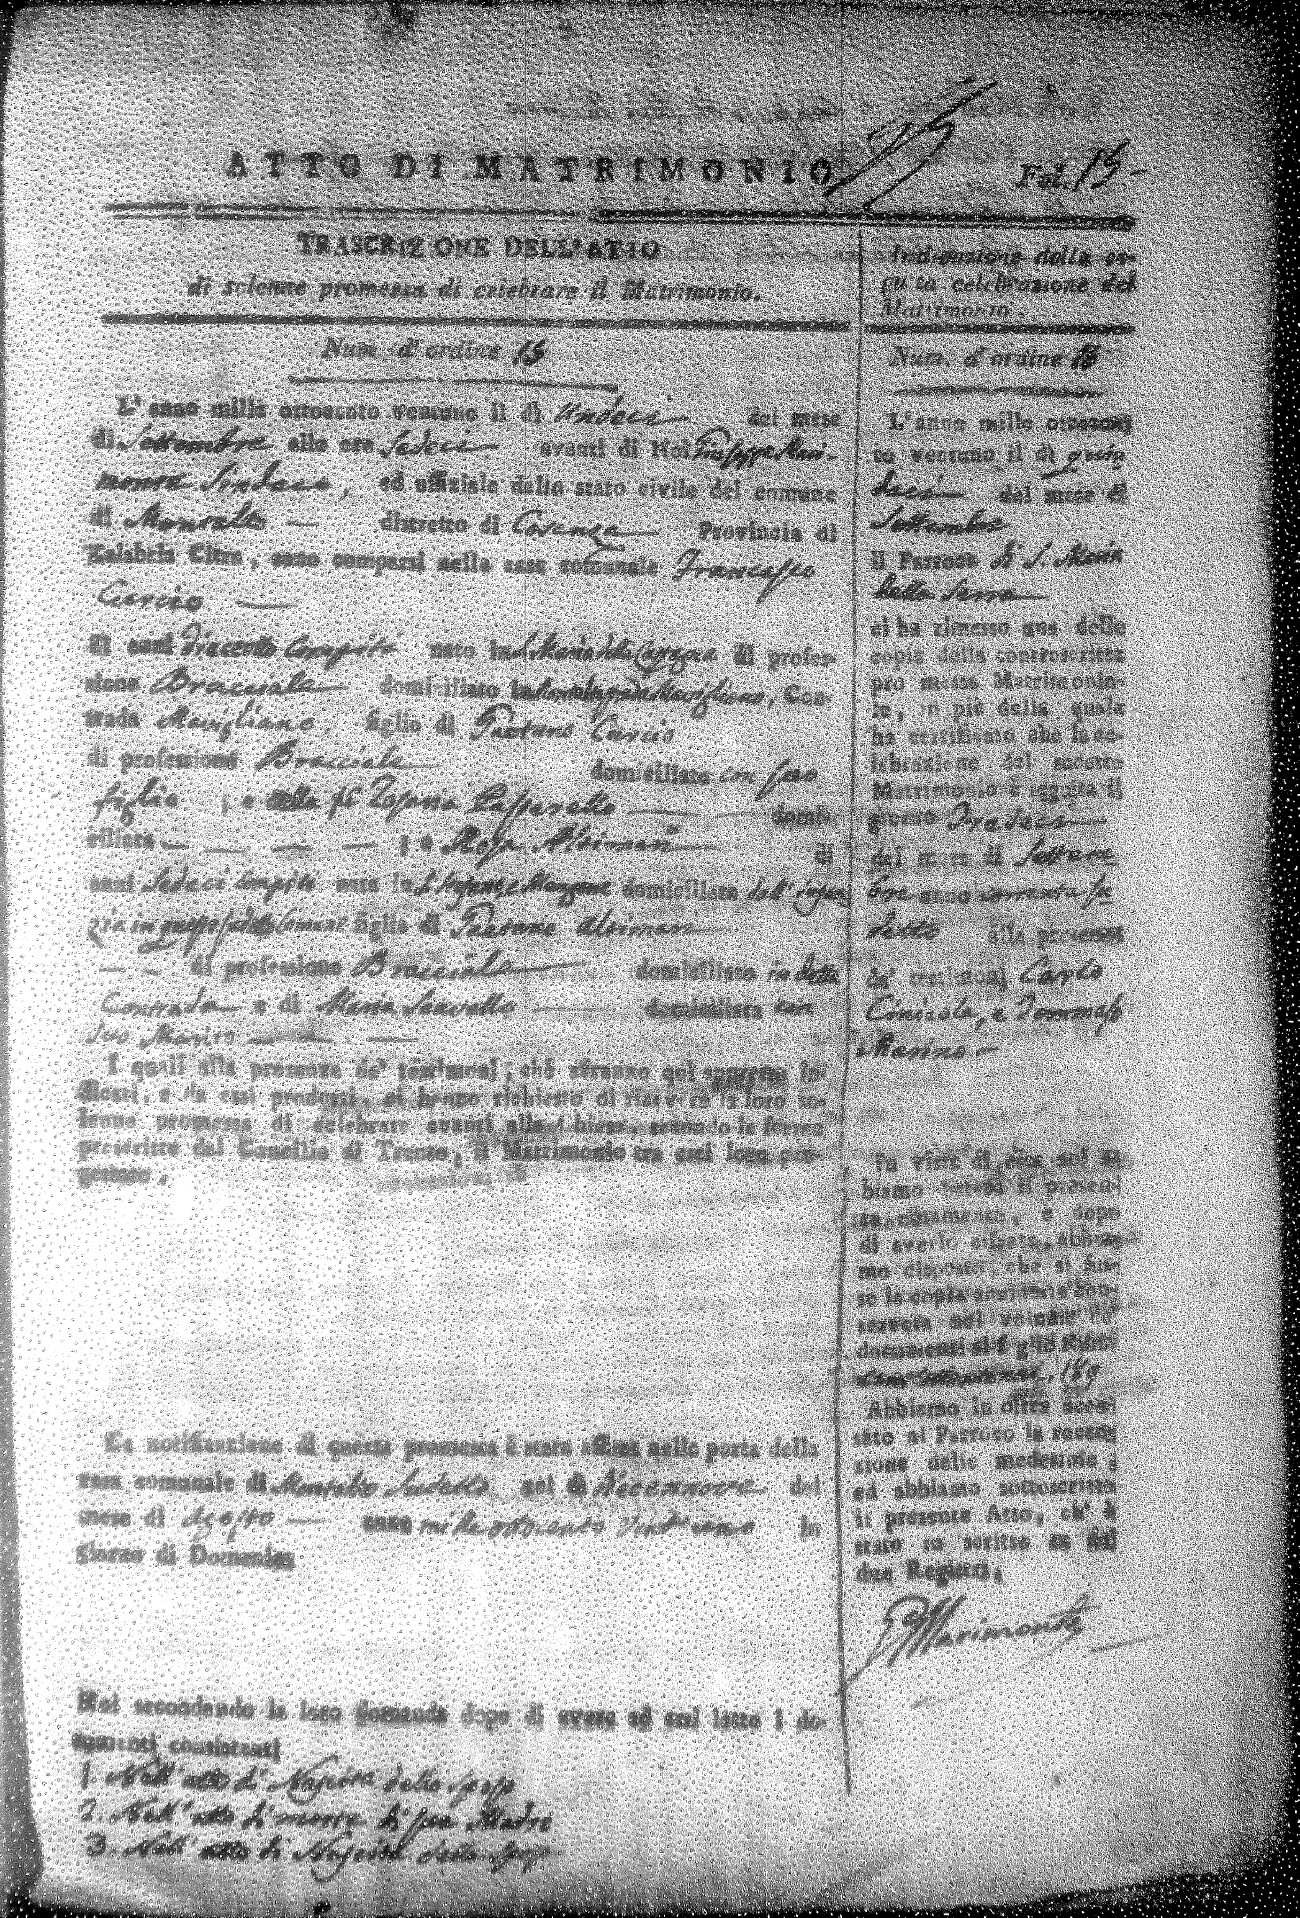 ATTO DI MATRIMONIO
Fol. 15
TRASCRIZIONE DELL'ATTO
di solenne promessa di celebrare il Matrimonio.
Num. d'ordine 15
L'anno mille ottocento ventuno il dì Undeci del mese
di Settembre alle ore Sedeci avanti di Noi Giuseppe Mari-
monte Sindaco, ed uffiziale dello stato civile del comune
di Montalto distretto di Cosenza Provincia di
Kalabria Citra, sono comparsi nella casa comunale Francesco
Curcio
Di anni Dieciotto Compiti nato in S. Maria della di profes-
sione Bracciale domiciliato in Con-
trada figlio di Gaetano Curcio
di professione Bracciale domiciliato con suo
figlio ; e della fu domi-
ciliata ; e Rosa Alsimari di
anni Sedeci compiti nata in domiciliata
in Comune figlia di Gaetano Alsimari
di professione Bracciale domiciliato in detta
Contrada e di Maria domiciliata con
suo Marito
I quali alla presenza de' testimonj, che saranno qui appresso in-
dicati, e da essi prodotti, ci hanno richiesto di ricevere la loro so-
lenne promessa di celebrare avanti alla chiesa, secondo le forme
prescritte dal Concilio di Trento, il Matrimonio tra essi loro pro-
gettato.
La notificazione di questa promessa è stata affissa nella porta della
casa comunale di Montalto sudetto nel dì Diecennove del
mese di Agosto anno mille ottocento vent'uno in
giorno di Domenica
Noi secondando la loro domanda dopo di avere ad essi letto i do-
cumenti consistenti
1. Nell'atto di Nascita dello sposo
2. Nell'atto di morte di sua Madre
3. Nell'atto di Nascita della sposa
Indicazione della se-
guita celebrazione del
Matrimonio.
Num. d'ordine 15
L'anno mille ottocen-
to ventuno il dì quin
deci del mese di
Settembre
Il Parroco di S. Maria
della Serra
ci ha rimesso una delle
copie della controscritta
promessa Matrimonia-
le, in piè della quale
ha certificato che la ce-
lebrazione del
Matrimonio è seguita il
giorno Tredeci
del mese di Settem
bre anno corrente su
detto alla presenza
de' testimonj Carlo
e Tommaso
Marino
In vista di essa noi ab-
biamo il presen-
te , e dopo
di averlo cifrato, abbia-
mo disposto, che si
se la copia con-
servata nel volume de'
documenti al foglio
189
Abbiamo in oltre accu-
sato al Parroco la recez-
zione della medesima,
ed abbiamo sottoscritto
il presente Atto, ch' è
stato in scritto su i
due Registri.
G Marimonte